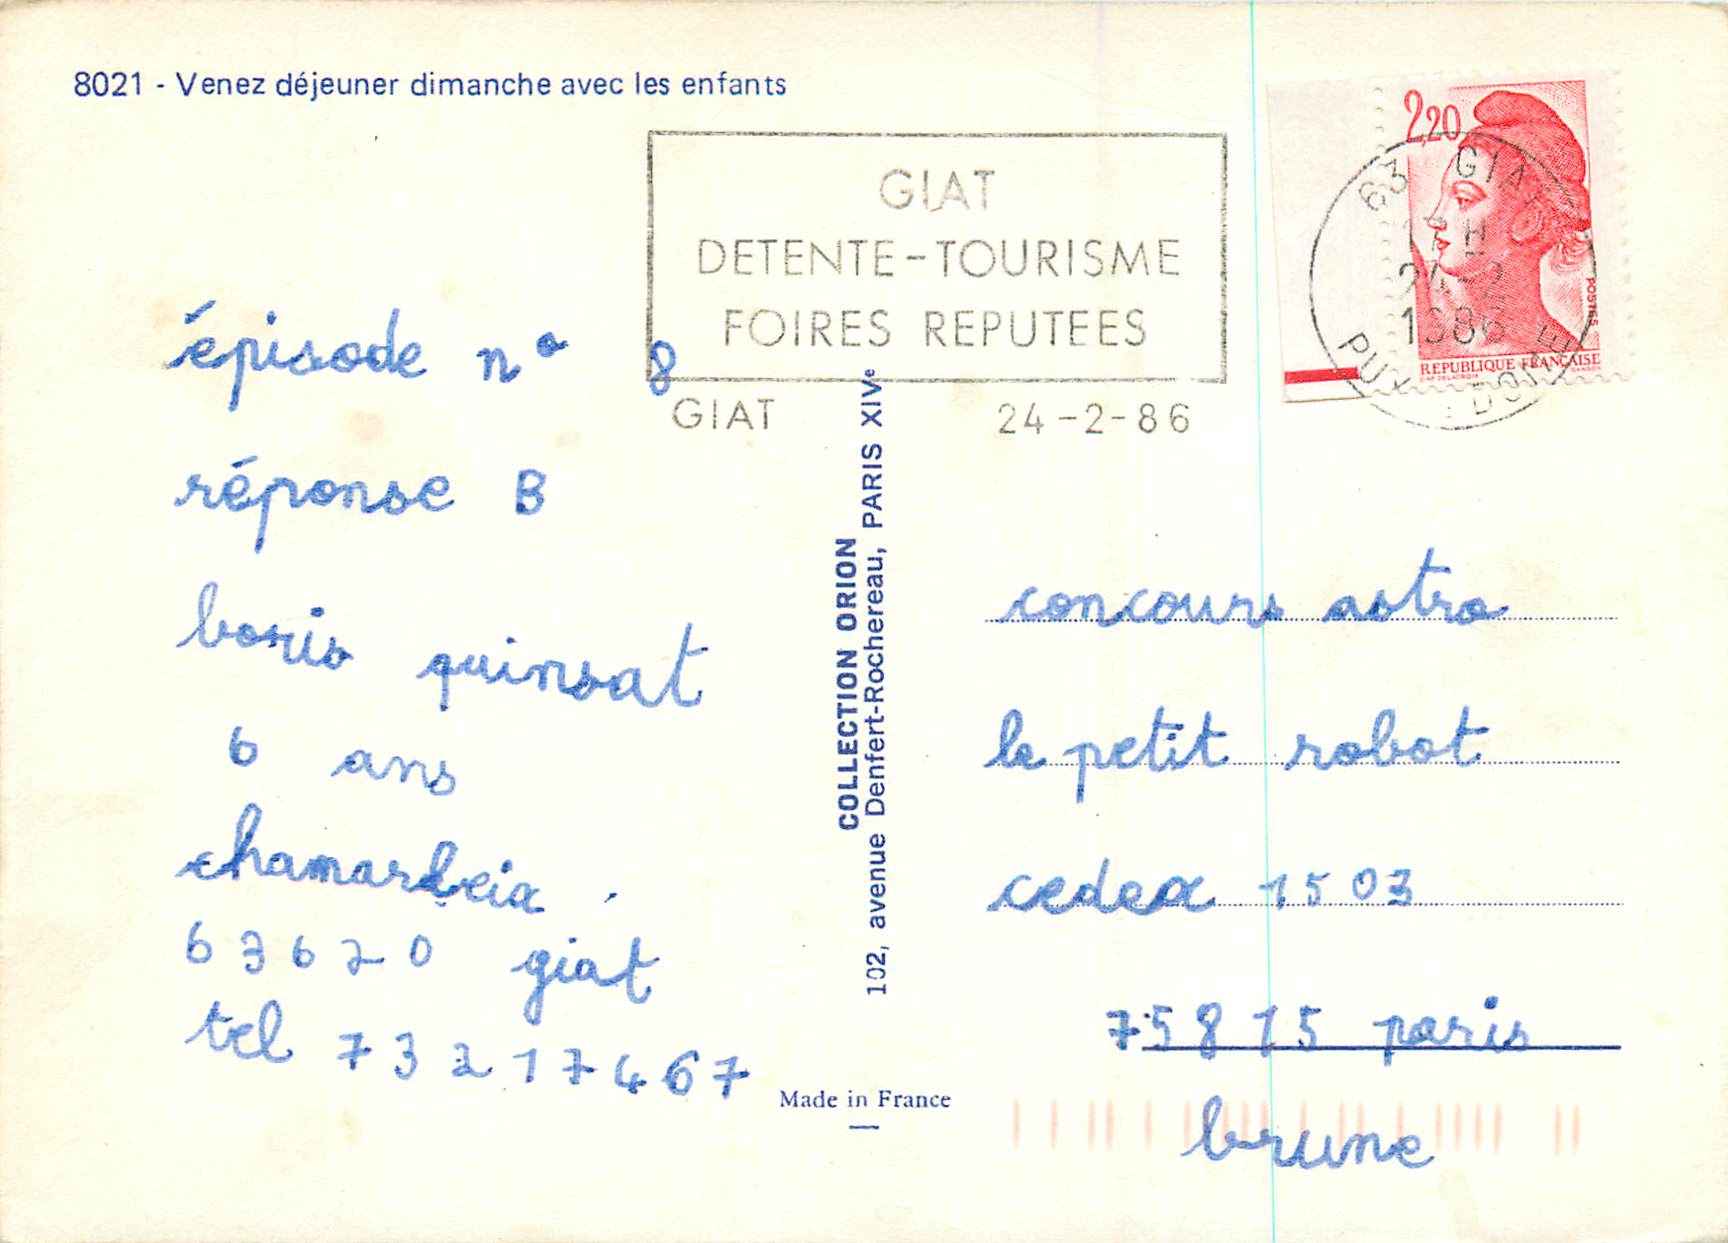 8021 - Venez déjeuner dimanche avec les enfants
GIAT
DETENTE-TOURISME
FOIRES REPUTEES
GIAT 24-2-86
2,20
POSTES
REPUBLIQUE FRANÇAISE
63 GIAT
17 H
24-2
1986
PUY DE DOME
épisode n° 8
réponse B
boris quinsat
6 ans
chamarleix
63620 giat
tel 73217467
COLLECTION ORION
102, avenue Denfert-Rochereau, PARIS XIVe
Made in France
concours astro
le petit robot
cedex 1503
75815 paris
brune